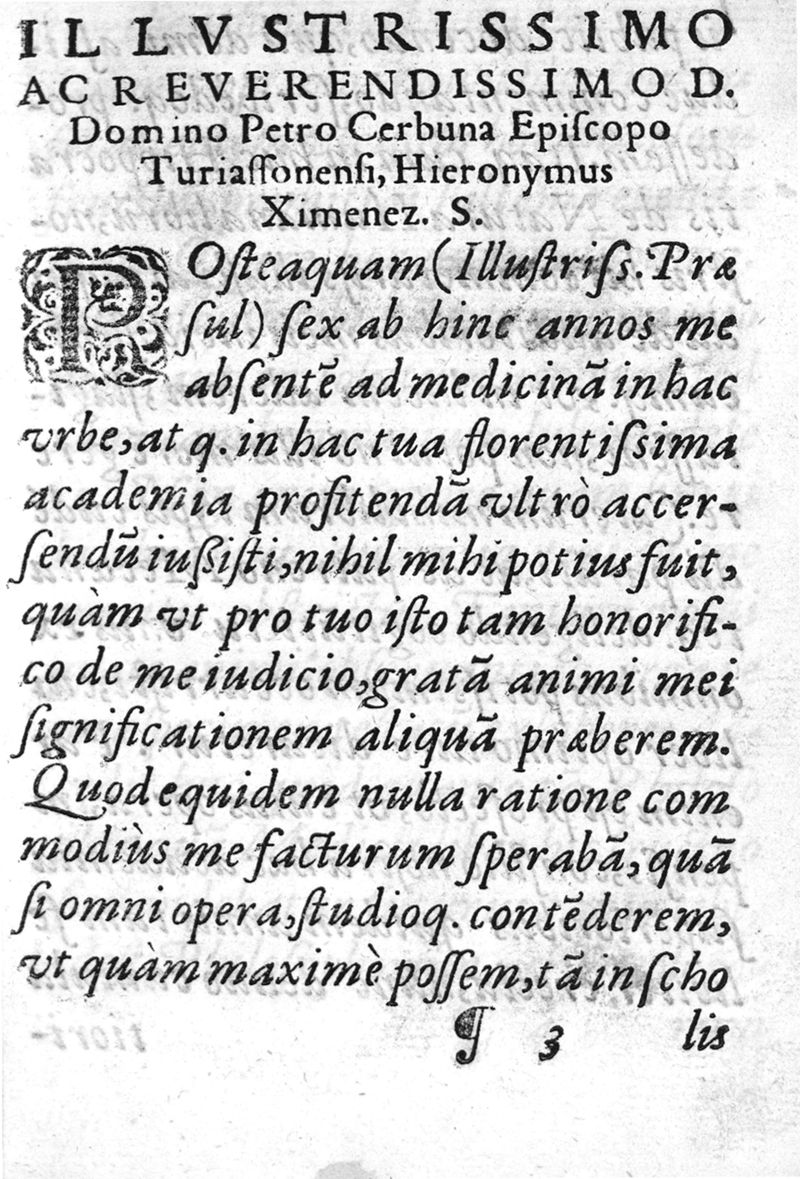 ILLVSTRISSIMO
AC REVERENDISSIMO D.
Domino Petro Cerbuna Epiſcopo
Turiaſſonenſi, Hieronymus
Ximenez. S.
POſteaquam (Illuſtriſs. Præ
ſul) ſex ab hinc annos me
abſentē ad medicinā in hac
vrbe, at q. in hac tua florentiſsima
academia profitendā vltrò accer-
ſendū iuſsiſti, nihil mihi potius fuit,
quàm vt pro tuo iſto tam honorifi-
co de me iudicio, gratā animi mei
ſignificationem aliquā præberem.
Quod equidem nulla ratione com
modiùs me facturum ſperabā, quā
ſi omni opera, ſtudioq. contēderem,
vt quàm maximè poſſem, tā in ſcho
¶ 3 lis